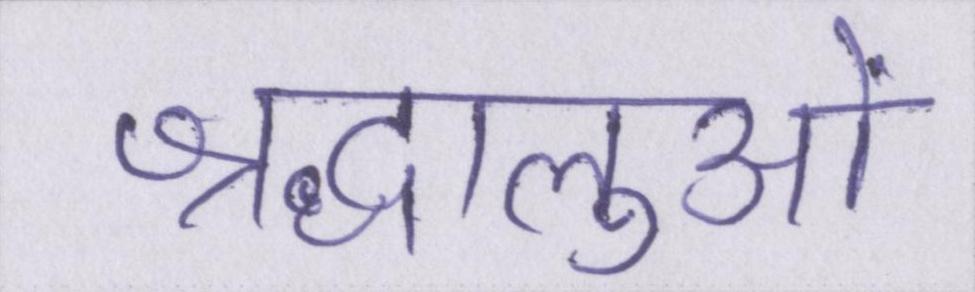 श्रद्धालुओं